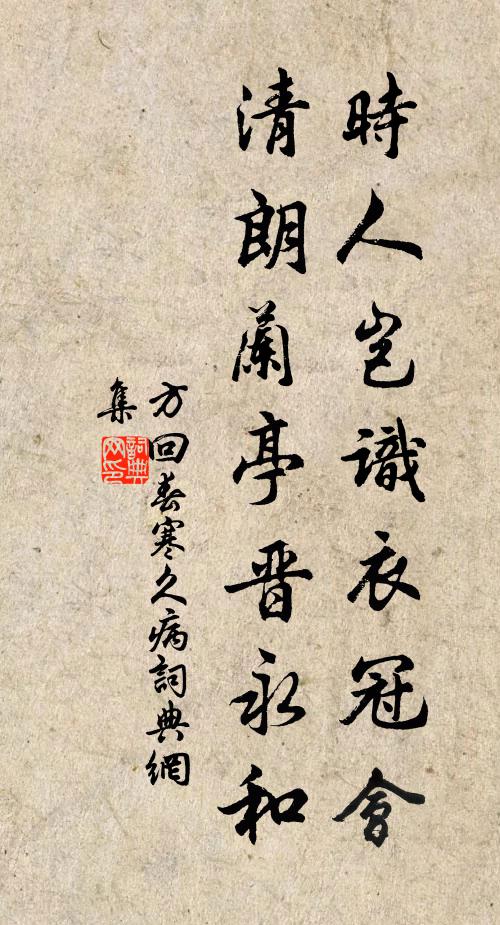 時人豈識衣冠會
清朗蘭亭晉永和
方回春寒久病詞典網
集
詞典網印